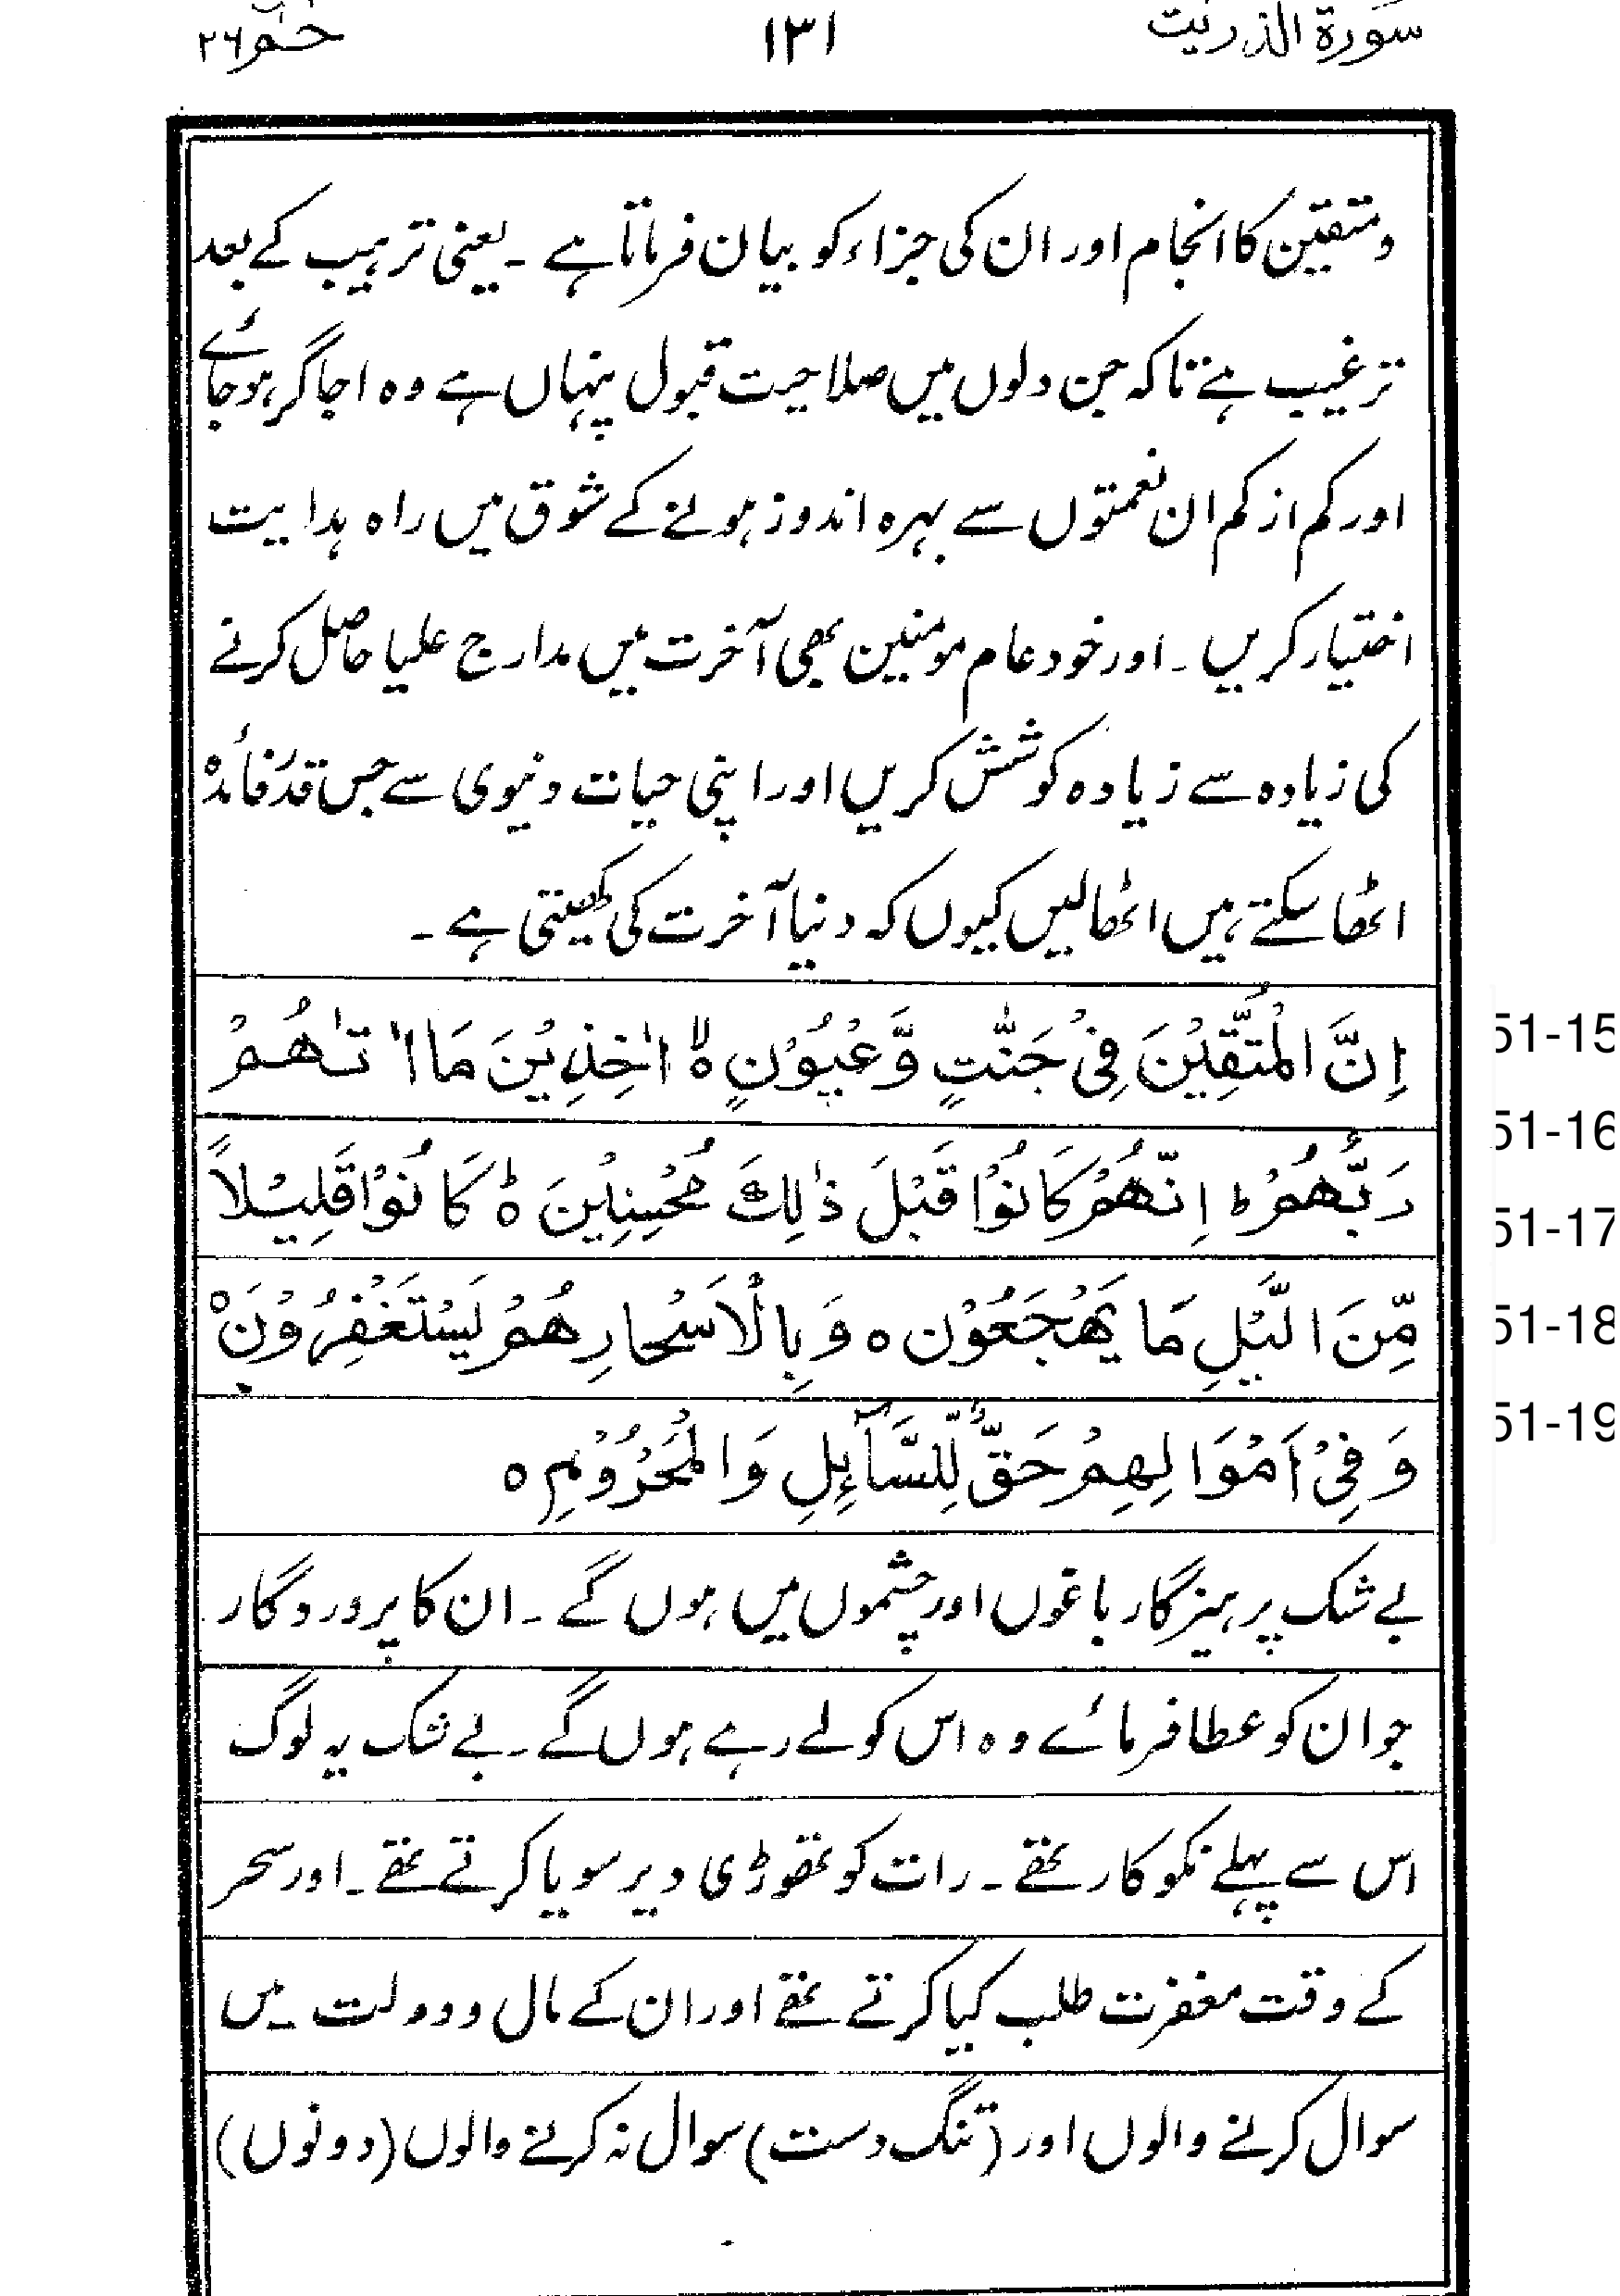 سورة الذریٰت ۱۳۱ حٰمٓ ۲۶
ومتقین کا انجام اور ان کی جزاء کو بیان فرماتا ہے ۔ یعنی ترہیب کے بعد
ترغیب ہے تاکہ جن دلوں میں صلاحیت قبول پنہاں ہے وہ اجاگر ہو جائے
اور کم از کم ان نعمتوں سے بہرہ اندوز ہونے کے شوق میں راہ ہدایت
اختیار کریں ۔ اور خود عام مومنین بھی آخرت میں مدارج علیا حاصل کرنے
کی زیادہ سے زیادہ کوشش کریں اور اپنی حیات دنیوی سے جس قدر فائدہ
اٹھا سکتے ہیں اٹھالیں کیوں کہ دنیا آخرت کی کھیتی ہے ۔
اِنَّ الْمُتَّقِیْنَ فِیْ جَنّٰتٍ وَّعُیُوْنٍ ۙ اٰخِذِیْنَ مَا اٰ تٰهُمْ
51-15
رَبُّهُمْ ؕ اِنَّهُمْ كَانُوْا قَبْلَ ذٰلِكَ مُحْسِنِیْنَ ؕ كَانُوْا قَلِیْلاً
51-16
51-17
مِّنَ الَّیْلِ مَا یَهْجَعُوْنَ ہ وَ بِالْاَسْحَارِ هُمْ یَسْتَغْفِرُوْنَ ہ
51-18
وَ فِیْۤ اَمْوَا لِهِمْ حَقٌّ لِّلسَّآىِٕلِ وَ الْمَحْرُوْمِ ہ
51-19
بے شک پرہیزگار باغوں اور چشموں میں ہوں گے ۔ ان کا پروردگار
جو ان کو عطا فرمائے وہ اس کو لے رہے ہوں گے ۔ بے شک یہ لوگ
اس سے پہلے نکوکار تھے ۔ رات کو تھوڑی دیر سویا کرتے تھے ۔ اور سحر
کے وقت مغفرت طلب کیا کرتے تھے اور ان کے مال و دولت میں
سوال کرنے والوں اور (تنگ دست) سوال نہ کرنے والوں (دونوں)